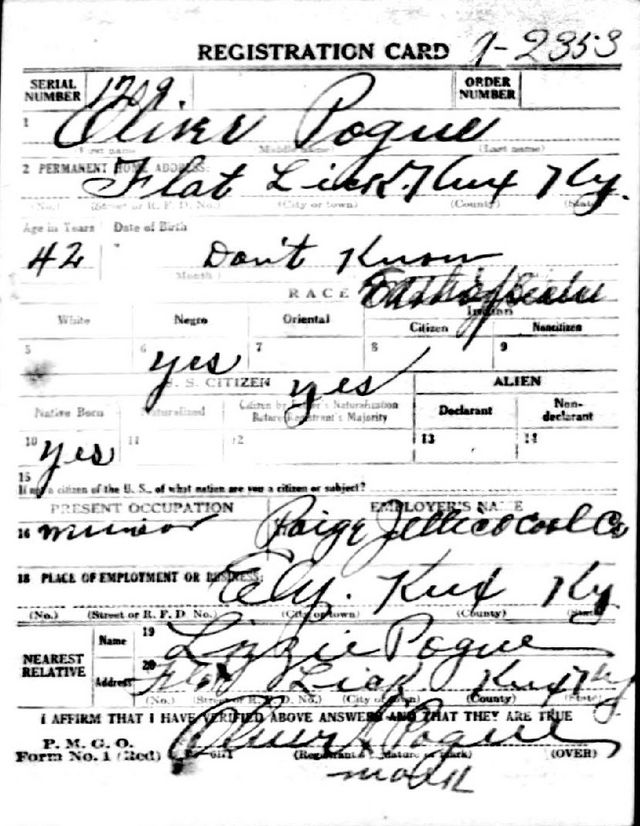 REGISTRATION CARD 9-2353
SERIAL NUMBER 1259 ORDER NUMBER
1 Oliver Pogue
First name) (Middle name) (Last name)
2 PERMANENT HOME ADDRESS:
Flat Lick Knx Ky.
(No.) (Street or R. F. D. No.) (City or town) (County) (State)
Age in Years Date of Birth
42 Don't Know
Month
RACE
White Negro Oriental Indian
Citizen Noncitizen
5 6 yes 7 8 9
U. S. CITIZEN yes ALIEN
Native Born Naturalized Citizen by Father's Naturalization Before Registrant's Majority Declarant Non-declarant
10 yes 11 12 13 14
15
If not a citizen of the U. S., of what nation are you a citizen or subject?
PRESENT OCCUPATION EMPLOYER'S NAME
16 Paige Jellico Coal Co
18 PLACE OF EMPLOYMENT OR BUSINESS:
Ely. Knx Ky
(No.) (Street or R. F. D. No.) (City or town) (County) (State)
NEAREST RELATIVE Name 19 Lizzie Pogue
Address 20 Flat Lick Knx Ky
(No.) (Street or R. F. D. No.) (City or town) (County) (State)
I AFFIRM THAT I HAVE VERIFIED ABOVE ANSWERS AND THAT THEY ARE TRUE
P. M. G. O.
Form No. 1 (Red) Oliver X Pogue
(Registrant's signature or mark) (OVER)
mark